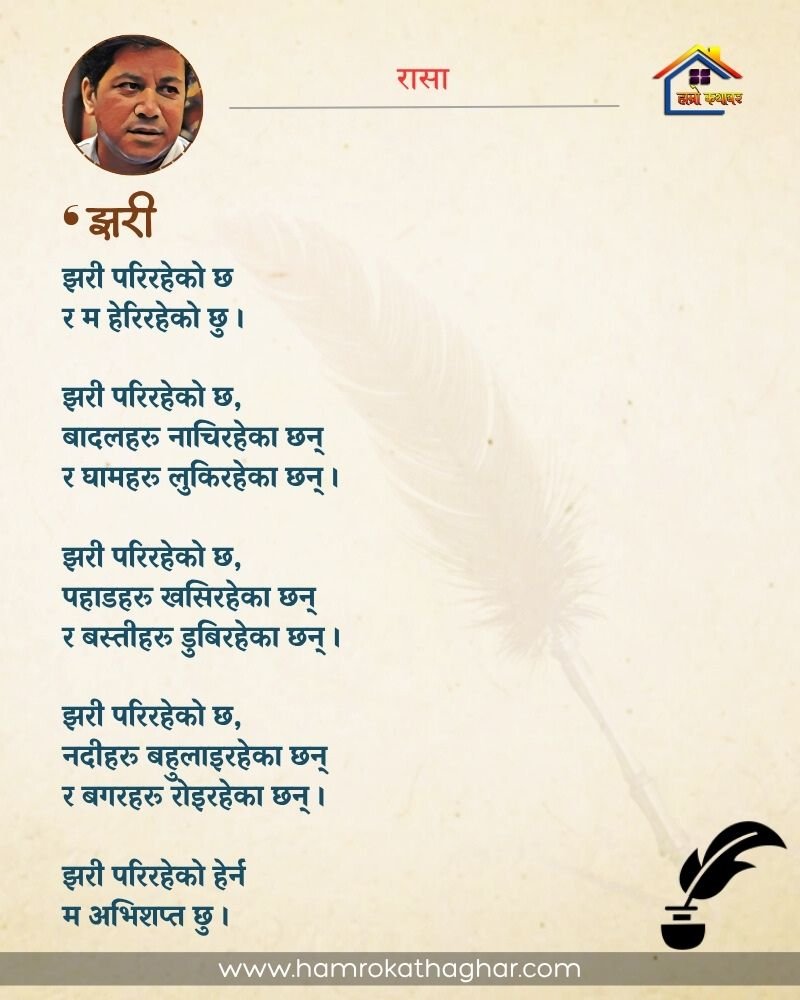 रासा
हाम्रो कथाघर
‘झरी
झरी परिरहेको छ
र म हेरिरहेको छु ।
झरी परिरहेको छ,
बादलहरू नाचिरहेका छन्
र घामहरू लुकिरहेका छन् ।
झरी परिरहेको छ,
पहाडहरू खसिरहेका छन्
र बस्तीहरू डुबिरहेका छन् ।
झरी परिरहेको छ,
नदीहरू बहुलाइरहेका छन्
र बगरहरू रोइरहेका छन् ।
झरी परिरहेको हेर्न
म अभिशप्त छु ।
www.hamrokathaghar.com